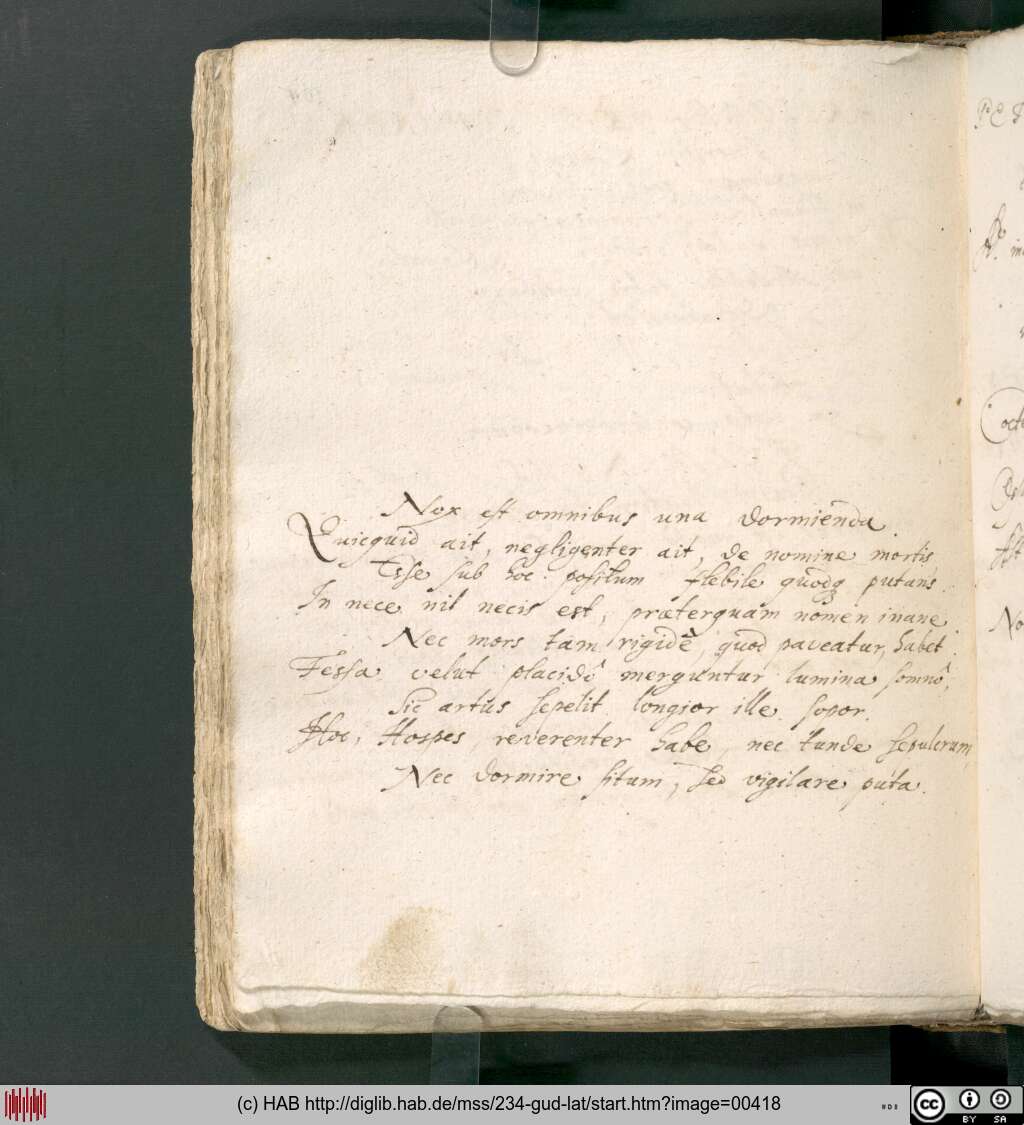 Nox est omnibus una dormienda.
Quicquid ait, negligenter ait, de nomine mortis,
Esse sub hoc positum flebile quodq putans.
In nece nil necis est, præterquam nomen inane.
Nec mors tam rigidè, quod paveatur, habet.
Fessa velut placidô merguntur lumina somnô,
Sic artus sepelit longior ille sopor.
Hoc, Hospes, reverenter habe, nec tunde sepulcrum,
Nec dormire situm, sed vigilare puta.
PET
octo
No
(c) HAB http://diglib.hab.de/mss/234-gud-lat/start.htm?image=00418
cc BY SA